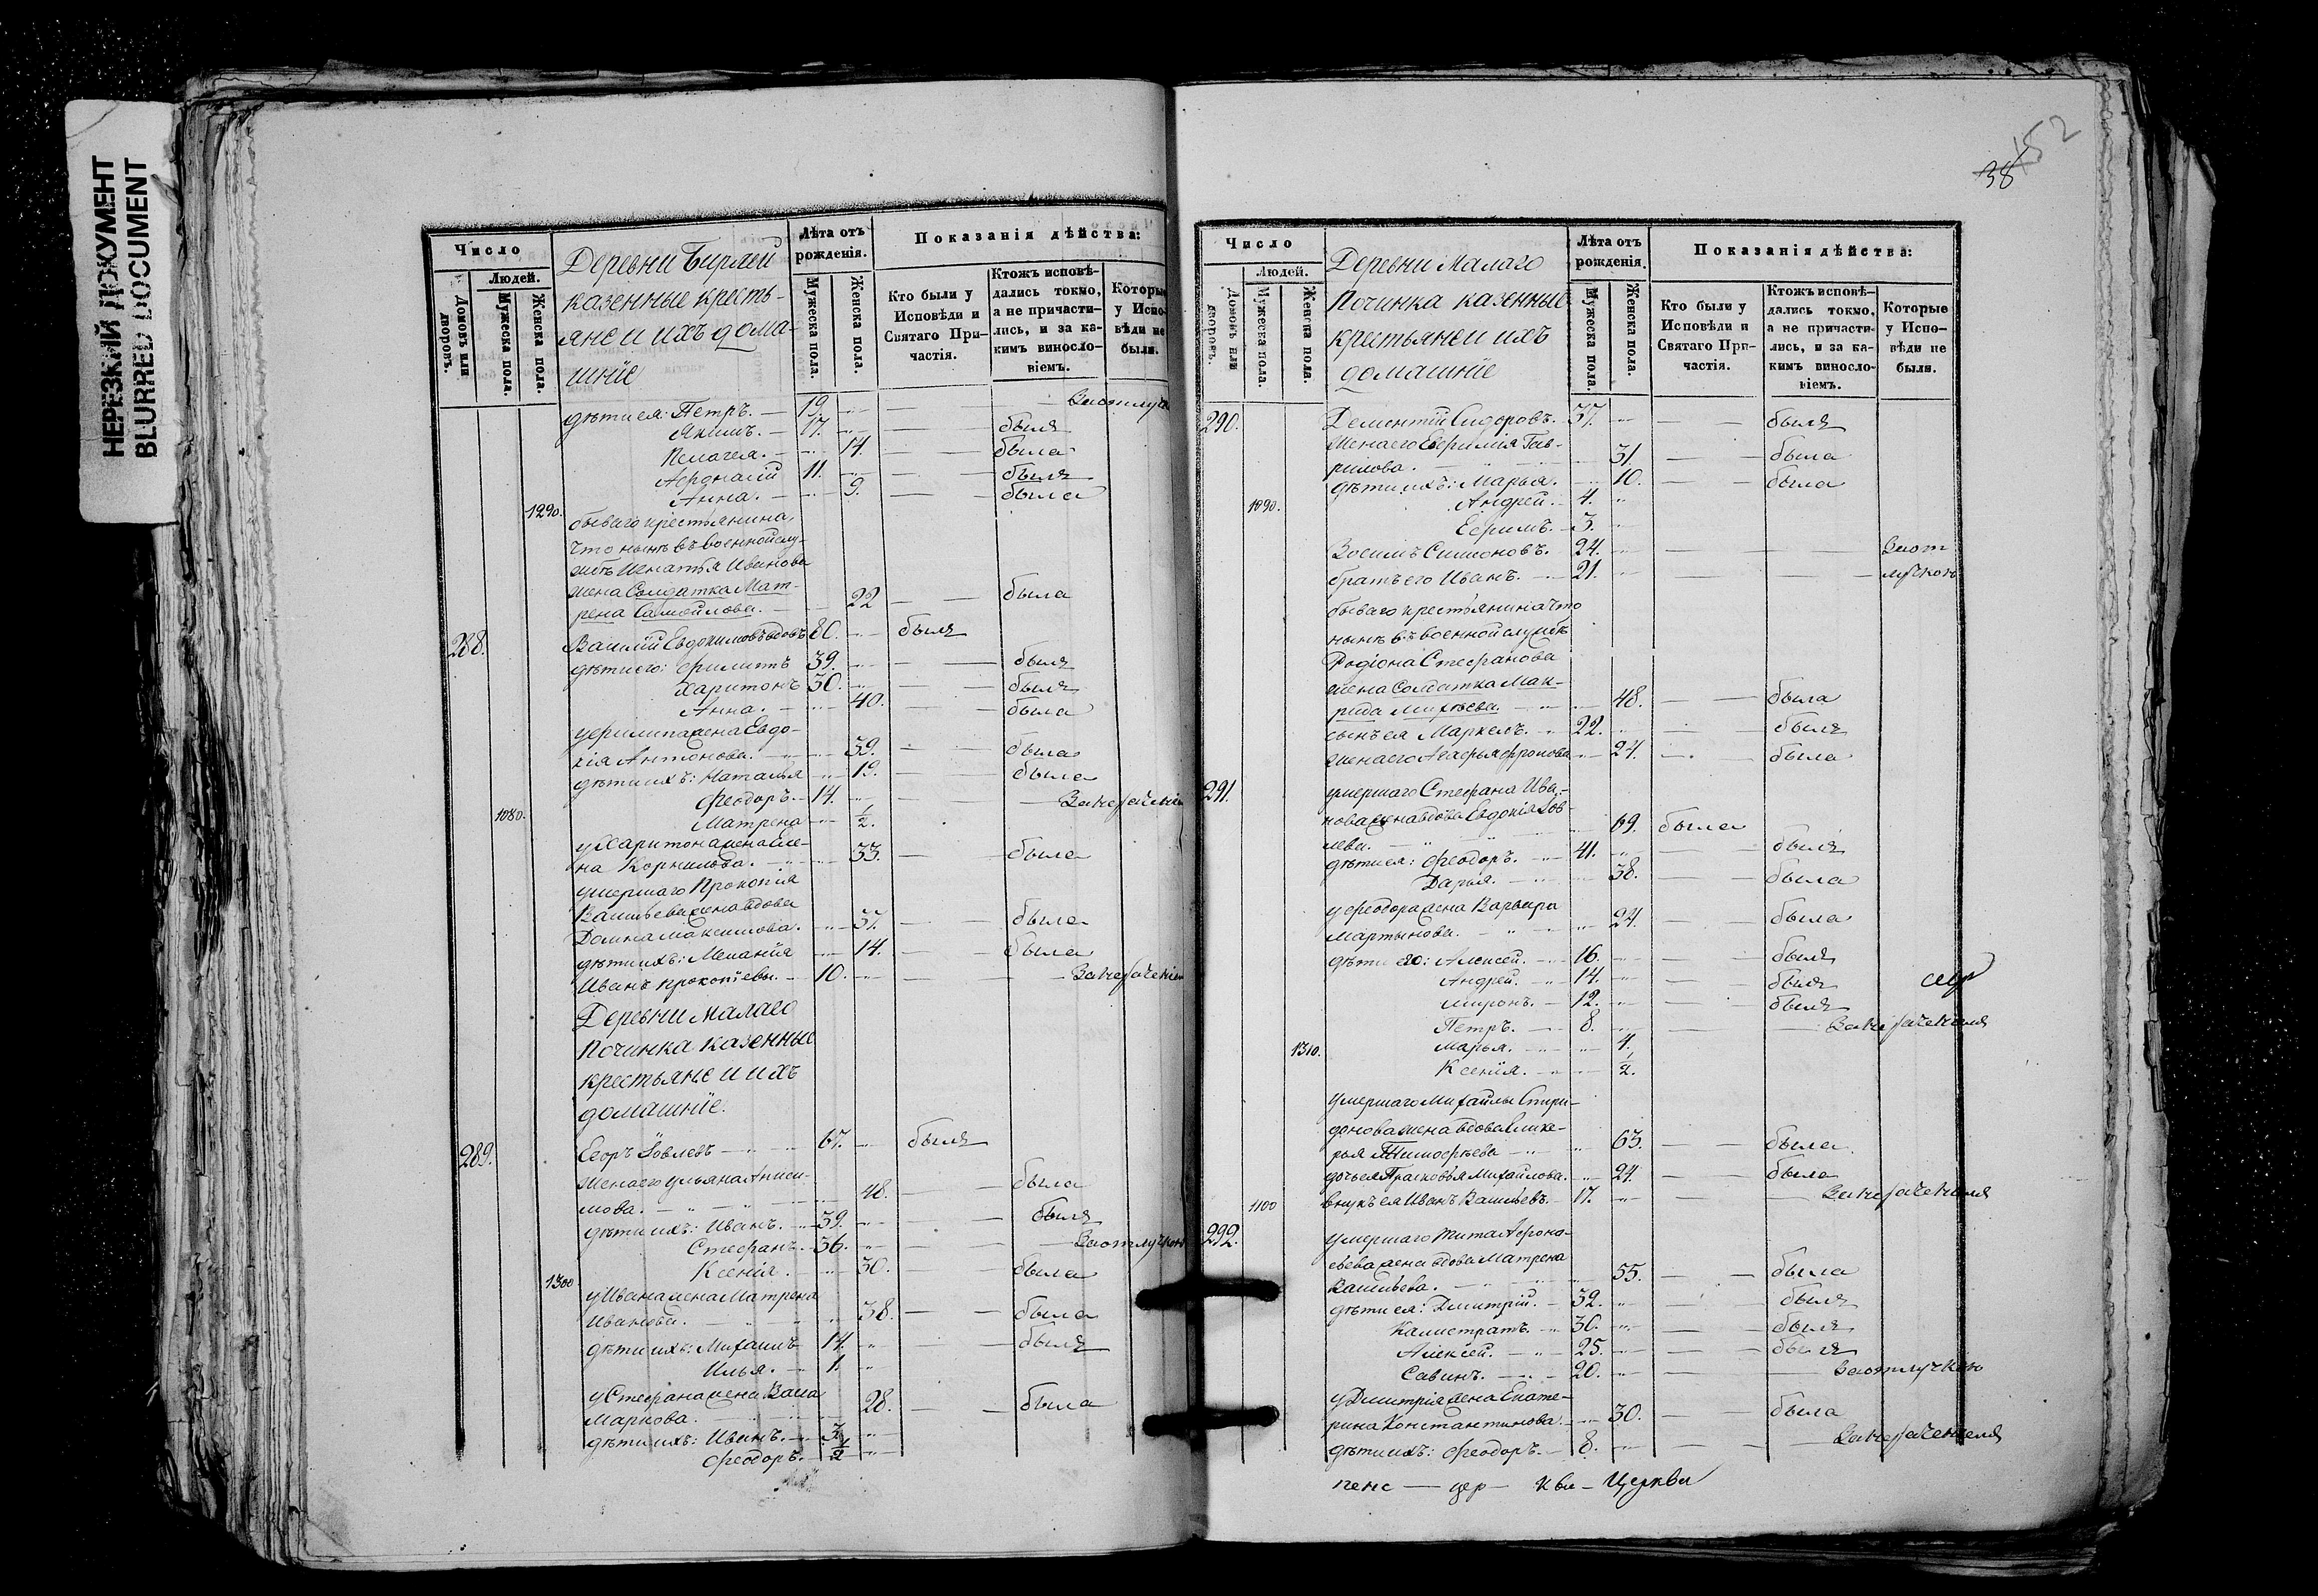 НЕРЕЗКИЙ ДОКУМЕНТ
BLURRED DOCUMENT
Число
Людей.
Домовъ или дворовъ.
Мужеска пола.
Женска пола.
Деревни Бирлей
казенные кресть-
яне и ихъ дома-
шніе
Лѣта отъ рожденія.
Мужеска пола.
Женска пола.
Показанія дѣйства:
Кто были у Исповѣди и Святаго При-частія.
Ктожъ исповѣ-дались токмо, а не причасти-лись, и за ка-кимъ виносло-віемъ.
Которые у Испо-вѣди не были.
дѣти ея: Петръ. 19. Заотлуч
Якимъ. 17. былъ
Пелагея. 14. была
Афонасій 11. былъ
Анна. 9. была
1290.
бываго крестьянина,
что нынѣ въ военной слу-
жбѣ Игнатья Иванова
жена Солдатка Мат-
рена Самойлова. 22 была
288. Василій Евдокимовъ вдовъ 80. былъ
дѣти его: Филиппъ 39. былъ
Харитонъ 30. былъ
Анна. 40. была
у Филипа жена Евдо-
кія Антонова. 39. была
дѣти ихъ: Наталья 19. была
Феодоръ. 14.
1080. Матрена 1/2.
у Харитона жена Еле-
на Корнилова. 33. была
умершаго Прокопія
Васильева жена вдова
Домна Максимова. 37. была
дѣти ихъ: Меланія 14. была
Иванъ Прокопіевы. 10.
Деревни Малаго
Починка казенные
крестьяне и ихъ
домашніе.
289. Егоръ Іовлевъ 67. былъ
жена его Ульяна Аниси-
мова. 48. была
дѣти ихъ: Иванъ. 39. былъ
Стефанъ. 36. Заотлучкою
Ксенія. 30. была
1300
у Ивана жена Матрена
Иванова. 38. была
дѣти ихъ: Михаилъ 14. былъ
Илья. 1.
у Стефана жена Васса
Маркова. 28. была
дѣти ихъ: Иванъ. 3.
Феодоръ. 1/2
38
152
Число
Людей.
Домовъ или дворовъ.
Мужеска пола.
Женска пола.
Деревни Малаго
Починка казенные
крестьяне и ихъ
домашніе
Лѣта отъ рожденія.
Мужеска пола.
Женска пола.
Показанія дѣйства:
Кто были у Исповѣди и Святаго При-частія.
Ктожъ исповѣ-дались токмо, а не причасти-лись, и за ка-кимъ виносло-віемъ.
Которые у Испо-вѣди не были.
290. Дементій Сидоровъ. 37. былъ
жена его Евфимія Гав-
рилова. 31. была
дѣти ихъ: Марья. 10. была
1090. Андрей. 4.
Ефимъ. 3.
Зосимъ Симоновъ. 24. Заот
братъ его Иванъ. 21. лучкою
бываго крестьянина что
нынѣ въ военной службѣ
Родіона Стефанова
жена Солдатка Мак-
рида Михѣева. 48. была
сынъ ея Маркелъ. 22. былъ
жена его Агафья Фролова 24. была
291. умершаго Стефана Ива-
нова жена вдова Евдокія Іов-
лева. 69. была
дѣти ея: Феодоръ. 41. былъ
Дарья. 38. была
у Феодора жена Варвара
Мартынова. 24. была
дѣти его: Алексей. 16. былъ
Андрей. 14. былъ
Миронъ. 12. былъ
Петръ. 8.
1310. Марья. 4.
Ксенія. 1/2.
умершаго Михайлы Спири-
донова жена вдова Глике-
рья Тимофѣева 63. была
дочь ея Прасковья Михайлова. 24. была
1100 внукъ ея Иванъ Васильевъ. 17.
292. умершаго Тита Афона-
сьева жена вдова Матрена
Васильева. 55. была
дѣти ея: Дмитрій. 32. былъ
Калистратъ. 30. былъ
Алексей. 25. былъ
Савинъ. 20. Заотлучкою
у Дмитрія жена Екате-
рина Константинова. 30. была
дѣти ихъ: Феодоръ. 8.
Церкви